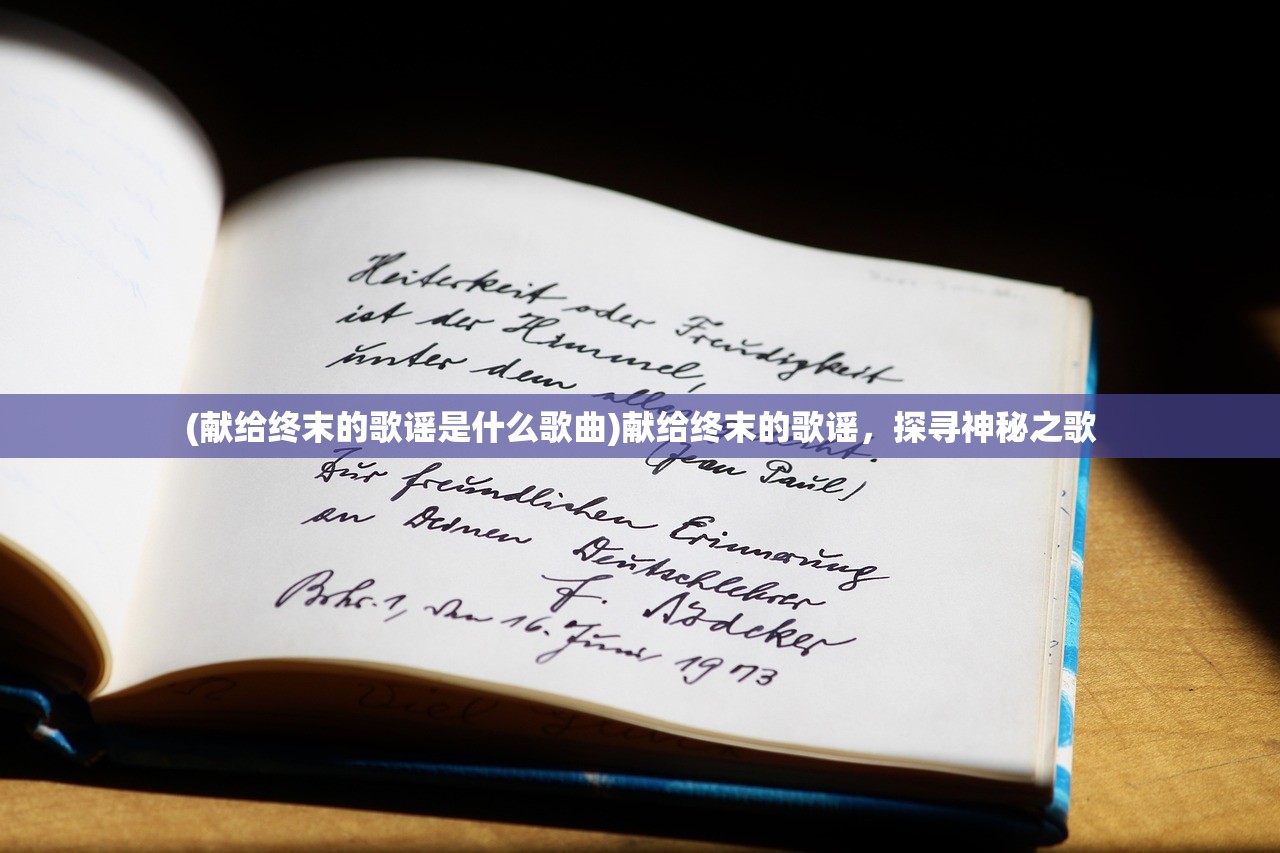 Heiterkeit oder Freudigkeit
ist der Himmel,
unter dem alles
(献给终末的歌谣是什么歌曲)献给终末的歌谣，探寻神秘之歌
(Jean Paul)
Zur freundlichen Erinnerung
an Deinen Deutschlehrer
F.
den 16. Juni 1973